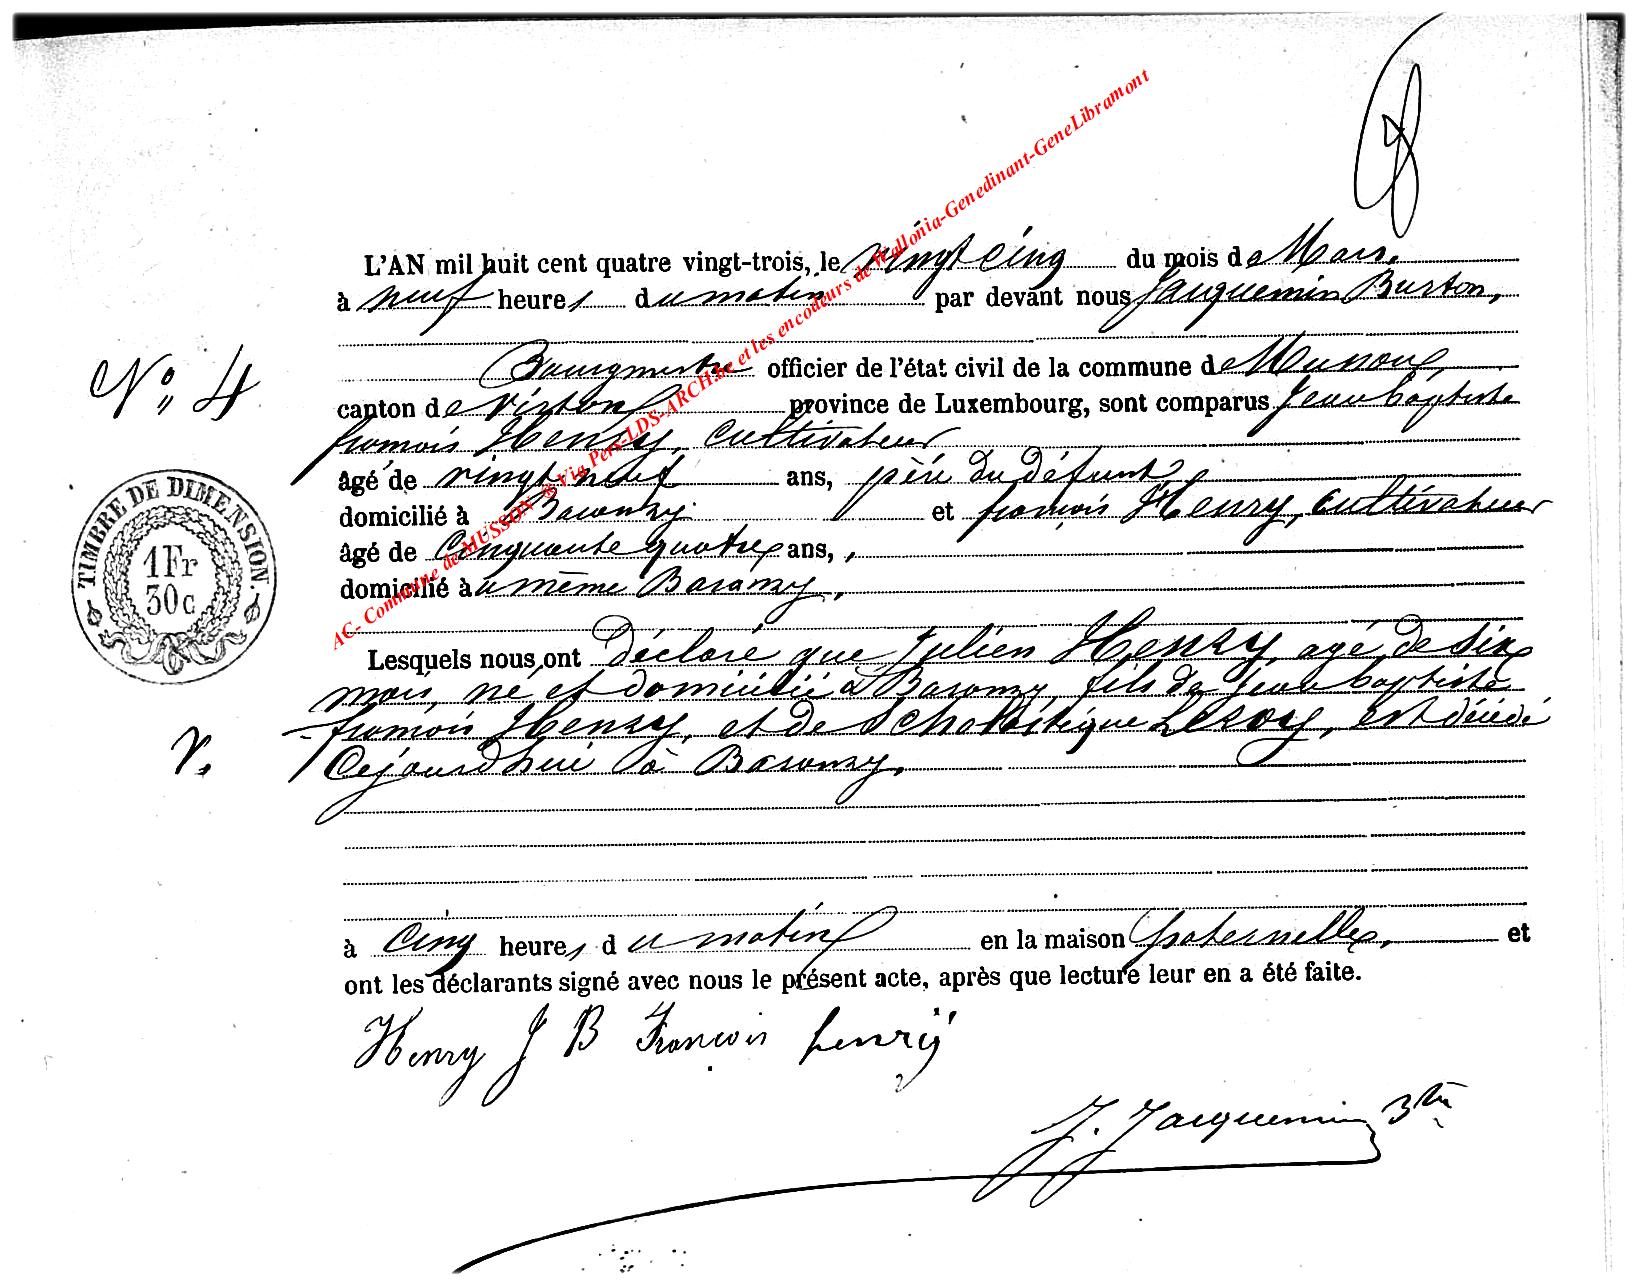 AC- Commune de MUSSON ® Via Pers-LDS-ARCH.be et les encodeurs de Wallonia-Genedinant-GeneLibramont
L'AN mil huit cent quatre vingt-trois, le vingt cinq du mois de Mars.
à neuf heures du matin par devant nous Jacquemin Burton,
Bourgmestre officier de l'état civil de la commune de Musson,
N° 4
canton de Virton province de Luxembourg, sont comparus Jean baptiste
françois Henry, cultivateur
âgé de vingt neuf ans, père du défunt,
domicilié à Baranzy et françois Henry, cultivateur
âgé de Cinquante quatre ans,
domicilié à a même Baranzy,
TIMBRE DE DIMENSION.
1 Fr
30c
Lesquels nous ont déclaré que Julien Henry, agé de six
mois, né et domicilié à Baranzy, fils de jean baptiste
françois Henry, et de Scholastique Leroy, est décédé
Cejourd'hui à Baranzy,
à Cinq heures du matin en la maison paternelle, et
ont les déclarants signé avec nous le présent acte, après que lecture leur en a été faite.
Henry J B François henry
J. Jacquemin